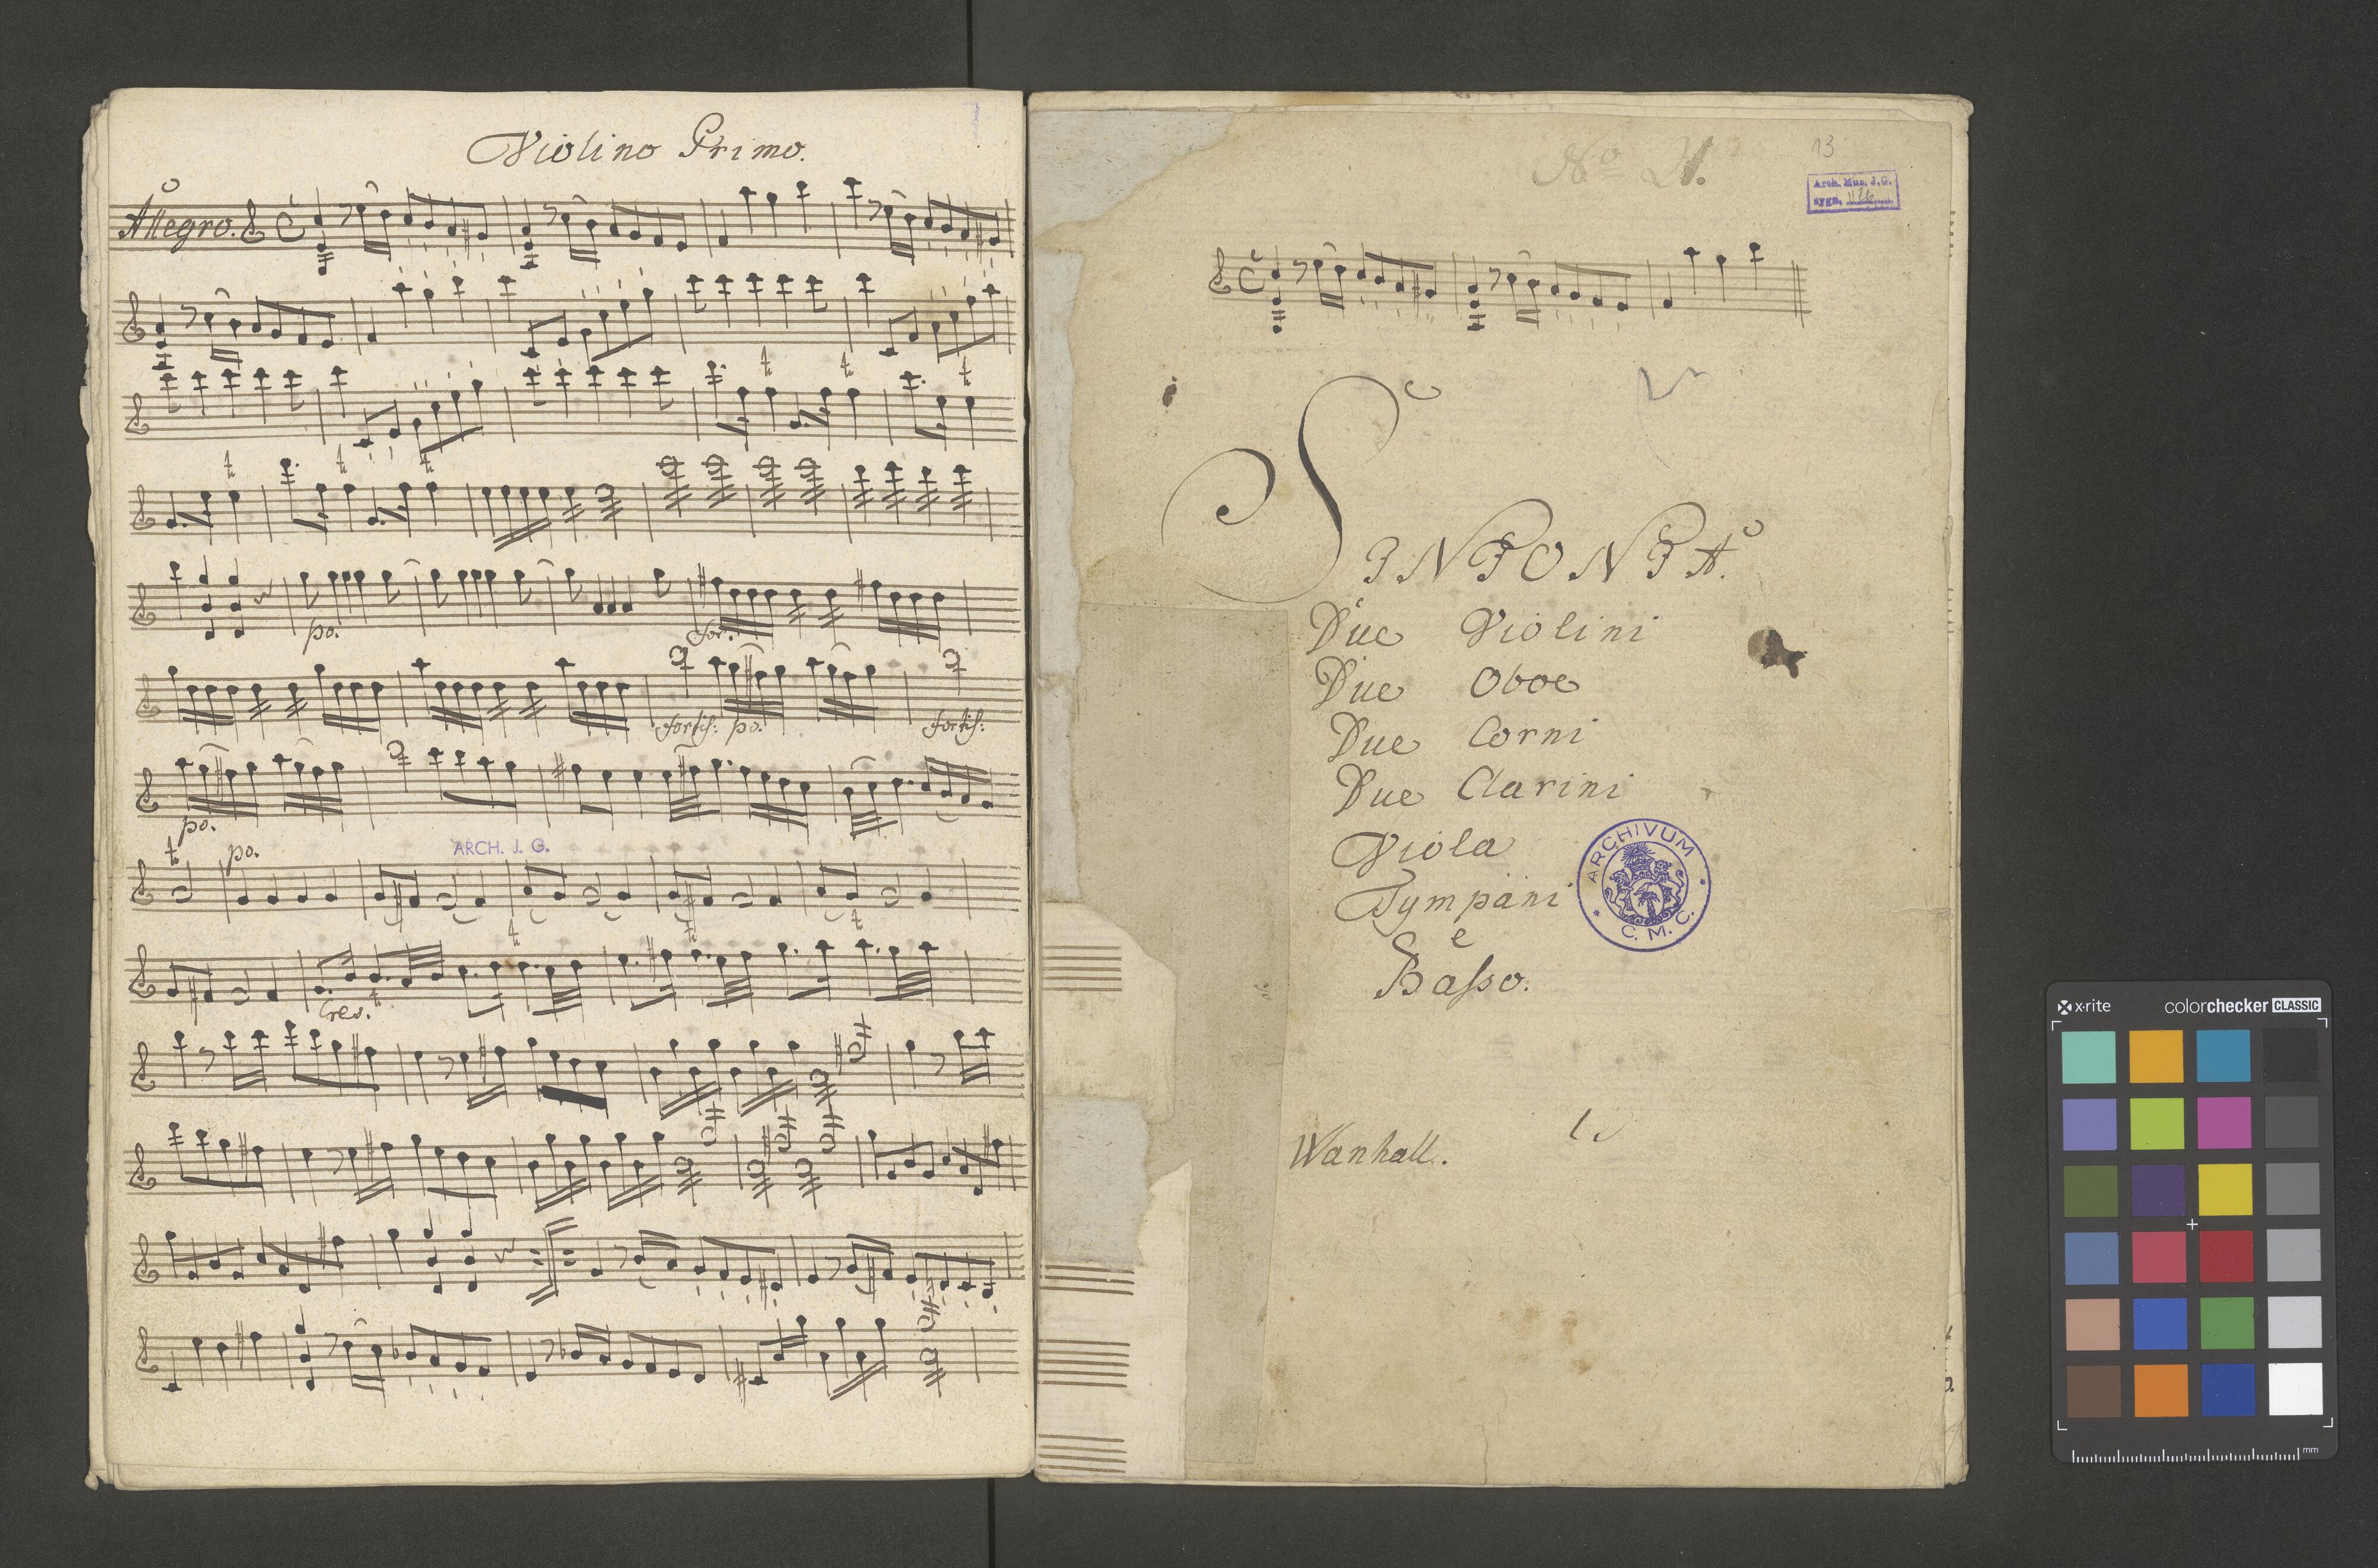 Violino Primo.
Allegro.
t t t
t t t
po. for.
fortiss: po. fortiss:
po.
t po. ARCH. J. G.
t t t
Cres. t
No 21.
13
Arch. Muz. J.G.
sygn.
SINFONIA.
Due Violini
Due Oboe
Due Corni
Due Clarini
Viola
Tympani
e
Basso.
ARCHIVUM
C. M. C.
Wanhall.
x-rite colorchecker CLASSIC
mm